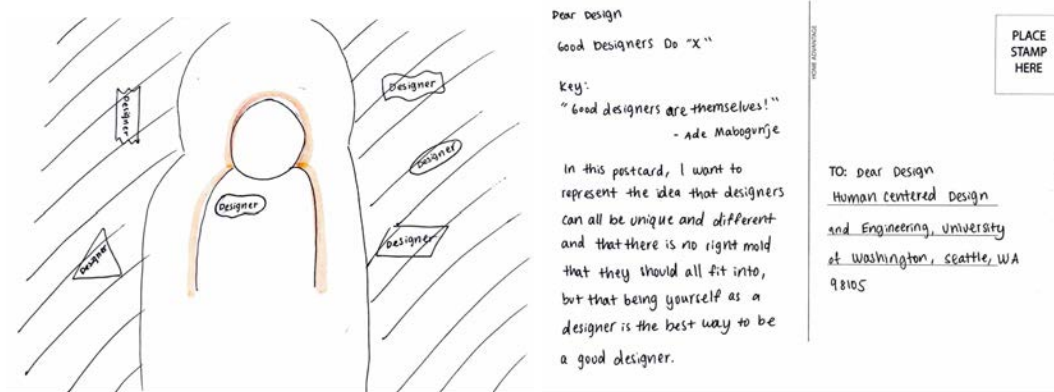 Designer
Designer
Designer
Designer
Designer
Designer
Dear Design
Good Designers Do "X"
Key:
"Good designers are themselves!"
- Ade Mabogunje
In this postcard, I want to
represent the idea that designers
can all be unique and different
and that there is no right mold
that they should all fit into,
but that being yourself as a
designer is the best way to be
a good designer.
HOME ADVANTAGE
PLACE
STAMP
HERE
TO: Dear Design
Human Centered Design
and Engineering, University
of Washington, Seattle, WA
98105